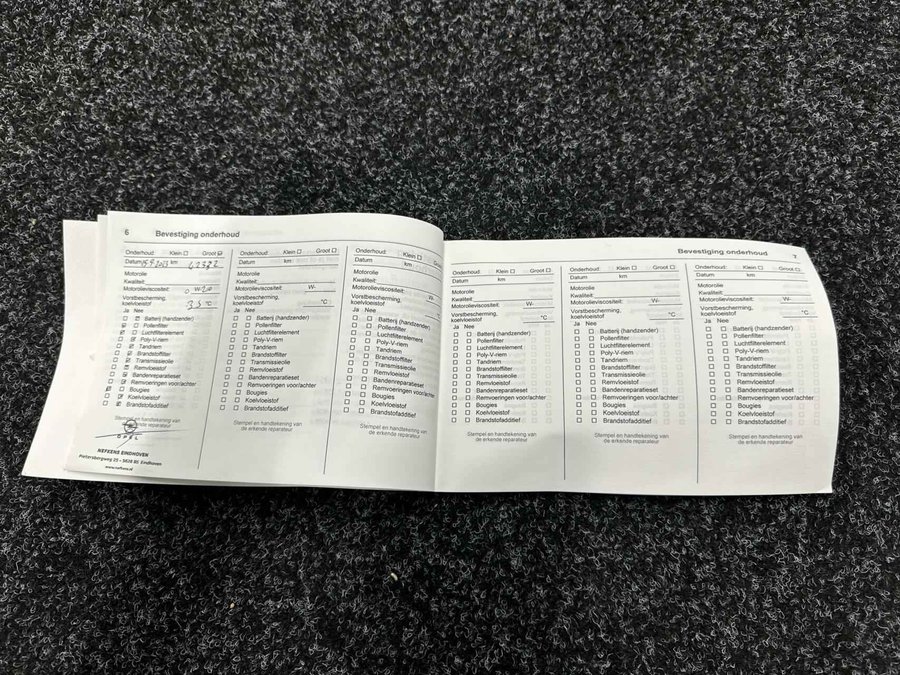 6 Bevestiging onderhoud
Onderhoud: Klein ☐ Groot ☑
Datum 15.9.2023 km 42382
Motorolie
Kwaliteit:
Motorolieviscositeit: 0 W-20
Vorstbescherming,
koelvloeistof 35 °C
Ja Nee
Batterij (handzender)
Pollenfilter
Luchtfilterelement
Poly-V-riem
Tandriem
Brandstoffilter
Transmissieolie
Remvloeistof
Bandenreparatieset
Remvoeringen voor/achter
Bougies
Koelvloeistof
Brandstofadditief
Stempel en handtekening van
de erkende reparateur
OPEL
NEFKENS EINDHOVEN
Pietersbergweg 25 - 5628 BS Eindhoven
www.nefkens.nl
Onderhoud: Klein ☐ Groot ☐
Datum km
Motorolie
Kwaliteit:
Motorolieviscositeit: W-
Vorstbescherming,
koelvloeistof °C
Ja Nee
Batterij (handzender)
Pollenfilter
Luchtfilterelement
Poly-V-riem
Tandriem
Brandstoffilter
Transmissieolie
Remvloeistof
Bandenreparatieset
Remvoeringen voor/achter
Bougies
Koelvloeistof
Brandstofadditief
Stempel en handtekening van
de erkende reparateur
Onderhoud: Klein ☐ Groot ☐
Datum km
Motorolie
Kwaliteit:
Motorolieviscositeit: W-
Vorstbescherming,
koelvloeistof °C
Ja Nee
Batterij (handzender)
Pollenfilter
Luchtfilterelement
Poly-V-riem
Tandriem
Brandstoffilter
Transmissieolie
Remvloeistof
Bandenreparatieset
Remvoeringen voor/achter
Bougies
Koelvloeistof
Brandstofadditief
Stempel en handtekening van
de erkende reparateur
Bevestiging onderhoud 7
Onderhoud: Klein ☐ Groot ☐
Datum km
Motorolie
Kwaliteit:
Motorolieviscositeit: W-
Vorstbescherming,
koelvloeistof °C
Ja Nee
Batterij (handzender)
Pollenfilter
Luchtfilterelement
Poly-V-riem
Tandriem
Brandstoffilter
Transmissieolie
Remvloeistof
Bandenreparatieset
Remvoeringen voor/achter
Bougies
Koelvloeistof
Brandstofadditief
Stempel en handtekening van
de erkende reparateur
Onderhoud: Klein ☐ Groot ☐
Datum km
Motorolie
Kwaliteit:
Motorolieviscositeit: W-
Vorstbescherming,
koelvloeistof °C
Ja Nee
Batterij (handzender)
Pollenfilter
Luchtfilterelement
Poly-V-riem
Tandriem
Brandstoffilter
Transmissieolie
Remvloeistof
Bandenreparatieset
Remvoeringen voor/achter
Bougies
Koelvloeistof
Brandstofadditief
Stempel en handtekening van
de erkende reparateur
Onderhoud: Klein ☐ Groot ☐
Datum km
Motorolie
Kwaliteit:
Motorolieviscositeit: W-
Vorstbescherming,
koelvloeistof °C
Ja Nee
Batterij (handzender)
Pollenfilter
Luchtfilterelement
Poly-V-riem
Tandriem
Brandstoffilter
Transmissieolie
Remvloeistof
Bandenreparatieset
Remvoeringen voor/achter
Bougies
Koelvloeistof
Brandstofadditief
Stempel en handtekening van
de erkende reparateur